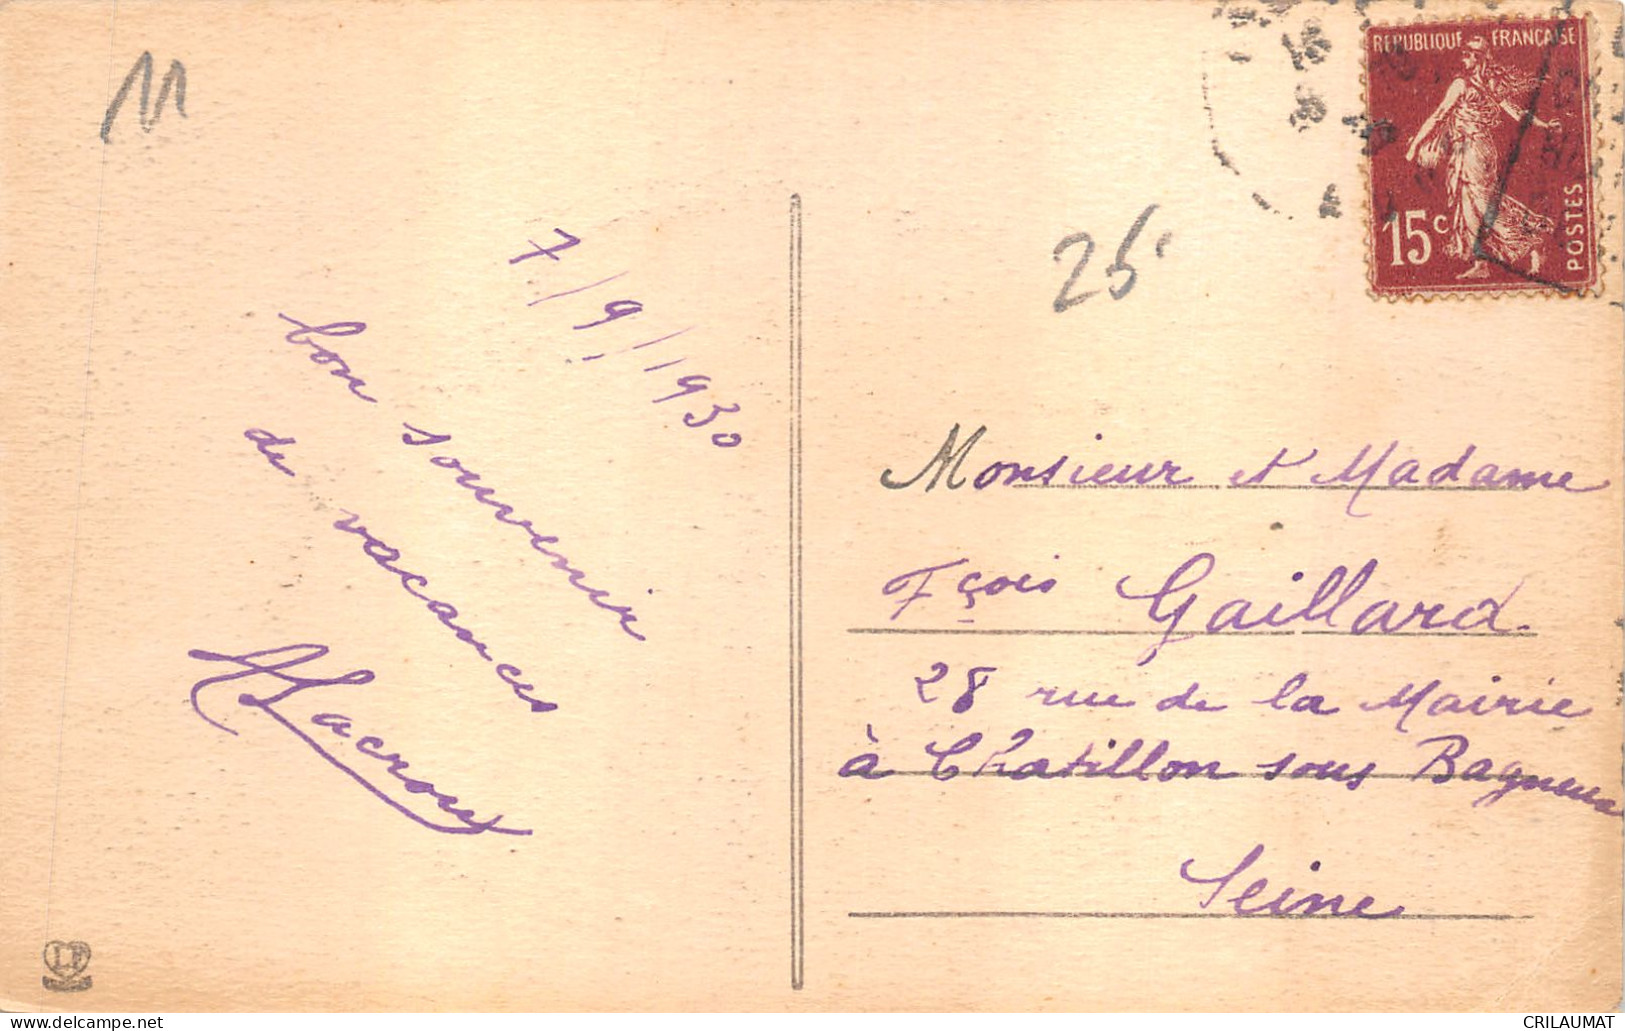 11
7/9/1930
bon souvenir
de vacances
Lacroux
25
REPUBLIQUE FRANÇAISE
15c
POSTES
Monsieur et Madame
Fçois Gaillard
28 rue de la Mairie
à Chatillon sous Bagneux
Seine
LF
www.delcampe.net
CRILAUMAT